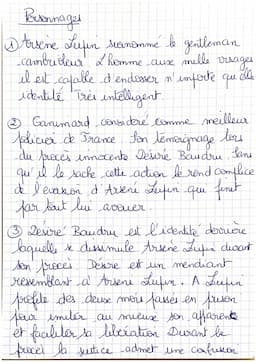 Personnages
① Arsène Lupin surnommé le gentleman
cambrioleur L'homme aux mille visages
il est capable d'endosser n'importe quelle
identité très intelligent
② Ganimard considéré comme meilleur
policier de France. Son témoignage lors
du procès innocente Désiré Baudru. Sans
qu'il le sache cette action le rend complice
de l'évasion d'Arsène Lupin qui finit
par tout lui avouer.
③ Désiré Baudru est l'identité derrière
laquelle se dissimule Arsène Lupin durant
son procès Désiré est un mendiant
ressemblant à Arsène Lupin. A Lupin
profite des deux mois passés en prison
pour imiter au mieux son apparence
et faciliter sa libération Durant le
procès la justice admet une confusion